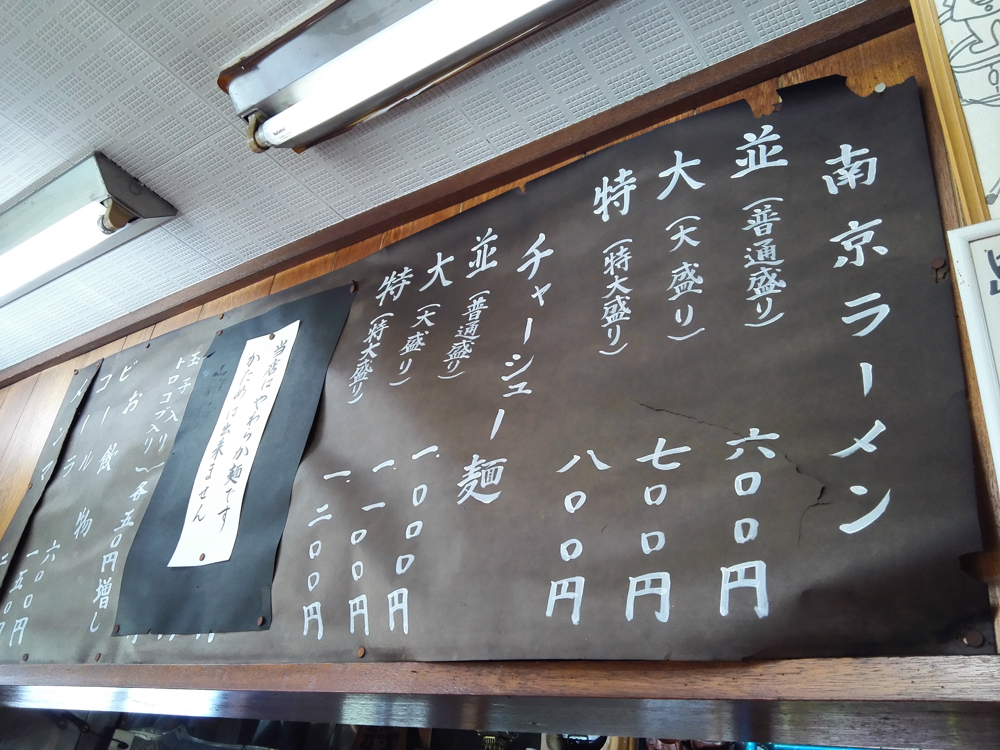 南京ラーメン
並（普通盛り） 六〇〇円
大（大盛り） 七〇〇円
特（特大盛り） 八〇〇円
チャーシュー麺
並（普通盛り） 一、〇〇〇円
大（大盛り） 一、一〇〇円
特（特大盛り） 一、二〇〇円
当店はやわらか麺です
かためは出来ません
玉子入り
トロロコブ入り
各五〇円増し
お飲物
ビール 六〇〇円
コーラ 一五〇円